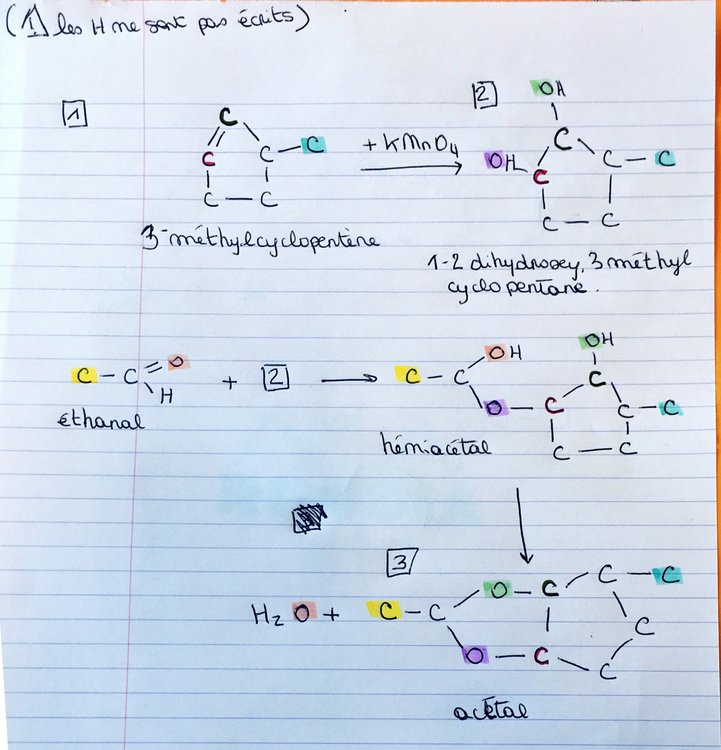 (⚠ les H ne sont pas écrits)
1
2
OH
C
C
C
C
C
C
+ KMnO4
OH
C
C
C
C
C
C
3-méthylcyclopentène
1-2 dihydroxy, 3 méthyl
cyclopentane.
C - C = O
H
+ 2
éthanal
C - C
OH
O
OH
C
C
C
C
C
C
hémiacétal
3
H2O + C - C
O
O
C
C
C
C
C
C
acétal